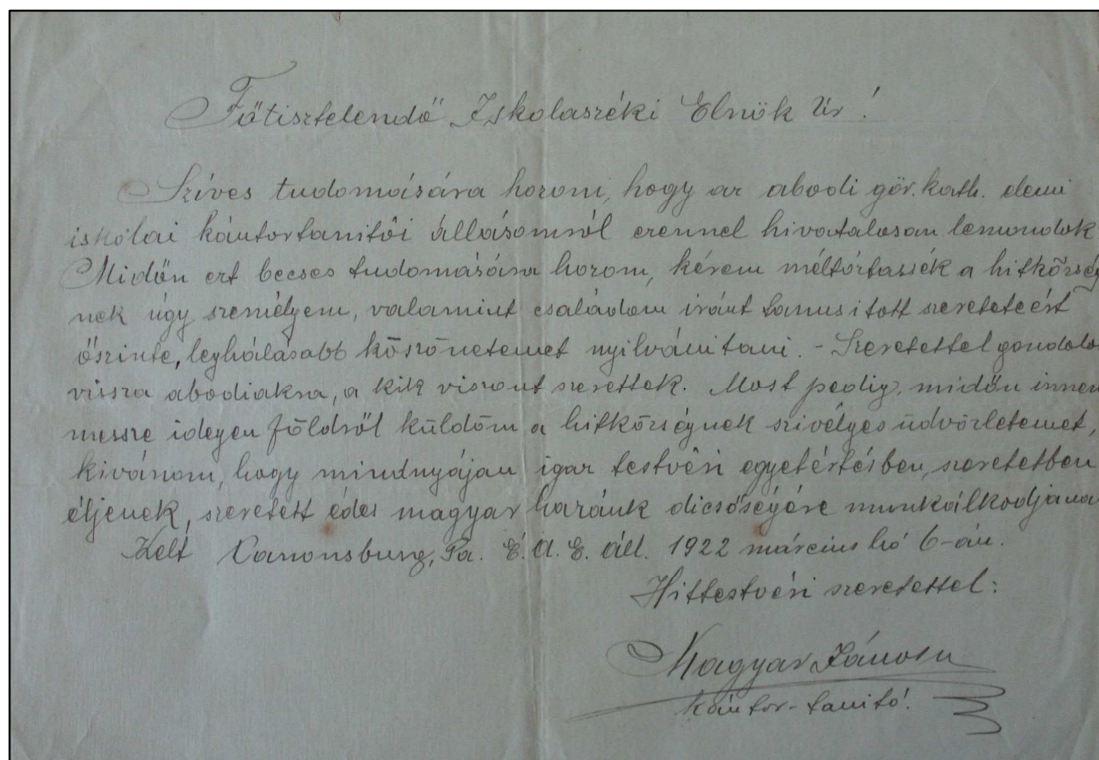 Főtisztelendő Iskolaszéki Elnök Úr!
Szíves tudomására hozom, hogy az abodi gör. kath. elemi
iskolai kántortanítói állásomról ezennel hivatalosan lemondok
Midőn ezt becses tudomására hozom, kérem méltóztassék a hitközség
nek úgy személyem, valamint családom iránt tanusitott szeretetéért
őszinte, leghálásabb köszönetemet nyilvánitani. - Szeretettel gondolo
vissza abodiakra, a kik viszont szerettek. Most pedig, midőn innen
messze idegen földről küldöm a hitközségnek szivélyes üdvözletemet,
kivánom, hogy mindnyájan igaz testvéri egyetértésben, szeretetben
éljenek, szeretett édes magyar hazánk dicsőségére munkálkodjana
Kelt Canonsburg, Pa. É. A. E. áll. 1922 március hó 6-án.
Hittestvéri szeretettel:
Magyar János
kántor-tanító.